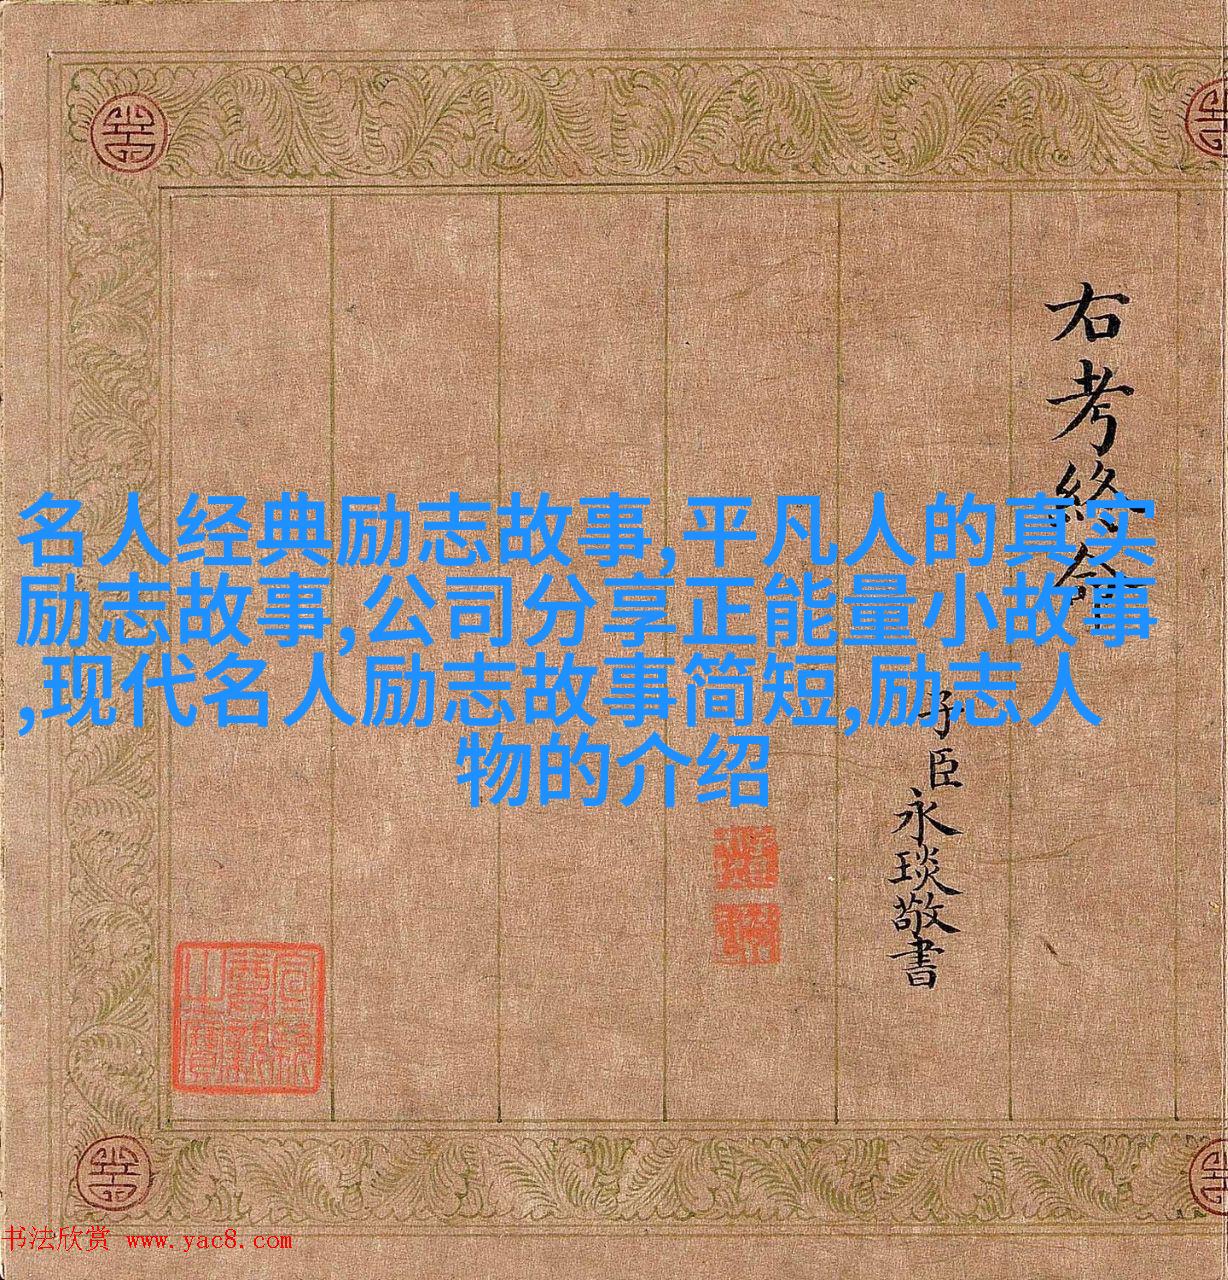 右考終命
子臣永琰敬書
名人经典励志故事,平凡人的真实
励志故事,公司分享正能量小故事
,现代名人励志故事简短,励志人
物的介绍
书法欣赏 www.yac8.com